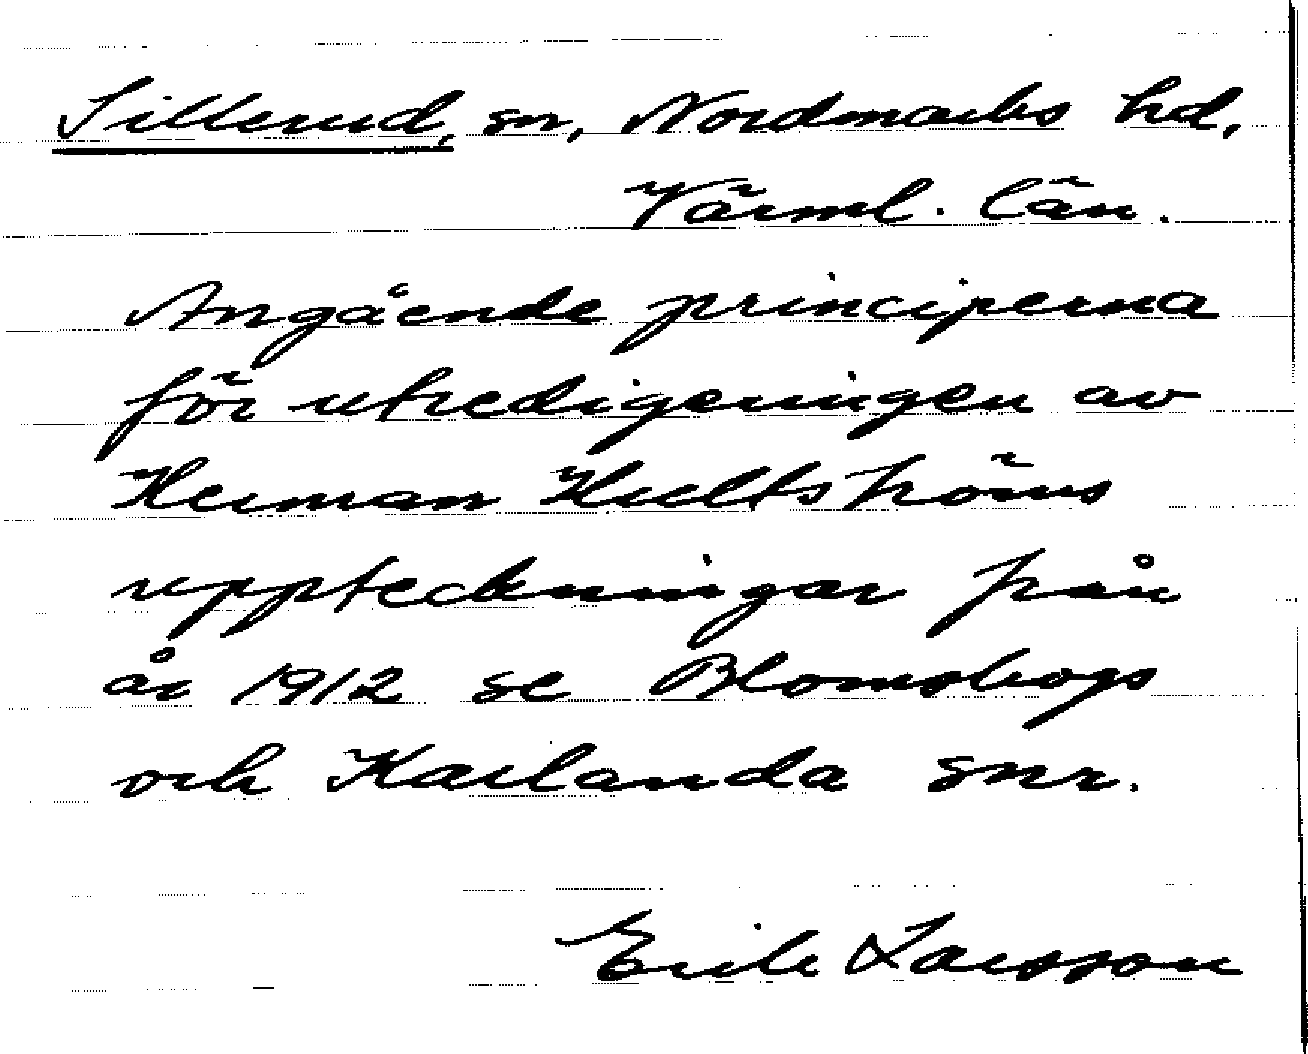 Sillerud, sn, Nordmarks hd,
Värml. län.
Angående principerna
för utredigeringen av
Herman Hultströms
uppteckningar från
år 1912 se Blomskogs
och Karlanda snr.
Erik Larsson